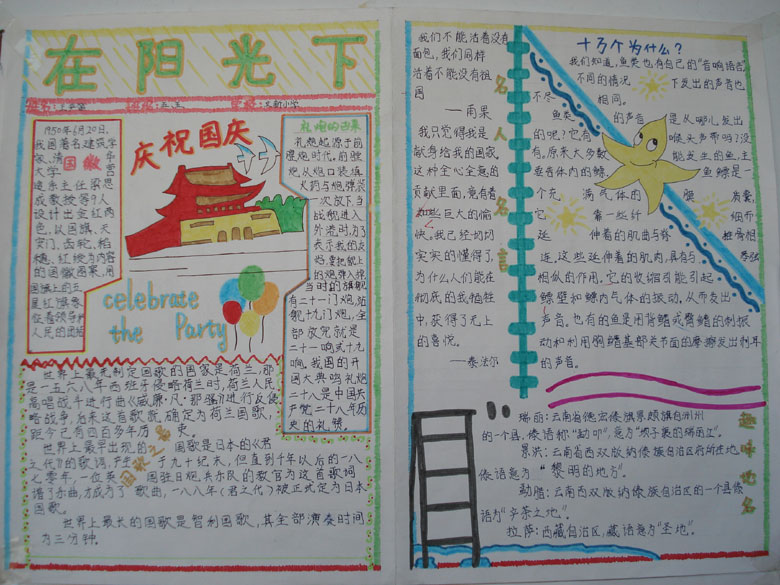 在阳光下
庆祝国庆
celebrate
the Party
1950年6月20日,
我国著名建筑学
家、清华
大学营
国徽
建系主任梁思
成教授等9人
设计出金红两
色,以国旗、天
安门、齿轮、稻
穗、红绶为内容
的国徽图案,用
国旗上的五
星红旗象
征着领导
人民的团结
礼炮的由来
礼炮起源于前
膛炮时代。前膛
炮从炮口装填
火药与炮弹,装
一次放下,当
战船进入
外港时,为了
表示我的友
好,要把船上
的炮弹入掉,
当时的旗舰
有二十一门炮,站
舰十九门炮,全
部放完就是
二十一响或十九
响。我国的开
国大典鸣礼炮
二十八是中国共
产党二十八年历
史的礼赞。
世界上最先制定国歌的国家是荷兰,那
是一五六八年西班牙侵略荷兰时,荷兰人民
高唱战斗进行曲《威廉·凡·那骚》进行反侵
略战争,后来这首歌就确定为荷兰国歌,
距今已有四百多年历史。
世界上最早出现的国歌是日本的《君
之代》的歌词,产生于九十纪末,但直到千年以后的一八
七零年,一位英国驻日炮兵乐队的教官为这首歌词
谱了乐曲,才成为了歌曲,一八八年《君之代》被正式定为日本
国歌。
世界上最长的国歌是智利国歌,其全部演奏时间
为三分钟。
国歌之最
我们不能活着没有
面包,我们同样
活着不能没有祖
国
——雨果
我只觉得我是
献身给我的国家。
这种全心全意的
贡献里面,竟有着
如些巨大的愉
快。我已经切切
实实的懂得了,
为什么人们能在
彻底的自我牺牲
中,获得了无上
的喜悦。
——泰法尔
名人名言
十万个为什么?
我们知道,鱼类也有自己的“音响语言”
不同的情况下发出的声音也
不尽相同。
鱼类的声音是从哪儿发出
的呢?它有喉头声带吗?没
有。原来大多数能发生的鱼,主
要音体内的鳔,鱼鳔是一
个充满气体的膜质囊,
它靠一些纤细而
延伸着的肌曲与脊椎骨相
连,这些延伸着的肌肉,具有与琴弦
相似的作用。它的收缩引能引起
鳔壁和鳔内气体的振动,从而发出
声音。也有的鱼是用背鳍或臀鳍的刺振
动和利用胸鳍基部关节面的摩擦发出刺耳
的声音。
趣味地名
瑞丽:云南省德宏傣族景颇族自州州
的一个县,傣语称“勐卯”,意为“坝子裹的瑞丽江”。
景洪:云南省西双版纳傣族自治区府所在地。
傣语意为“黎明的地方”。
勐腊:云南西双版纳傣族自治区的一个县傣
语为“产茶之地”。
拉萨:西藏自治区,藏语意为“圣地”。